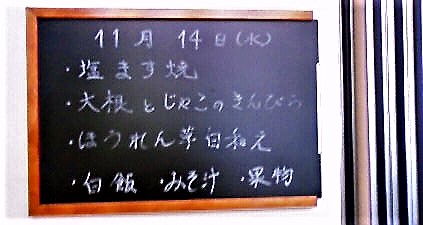 11月 14日(水)
・塩ます焼
・大根とじゃこのきんぴら
・ほうれん草白和え
・白飯 ・みそ汁 ・果物